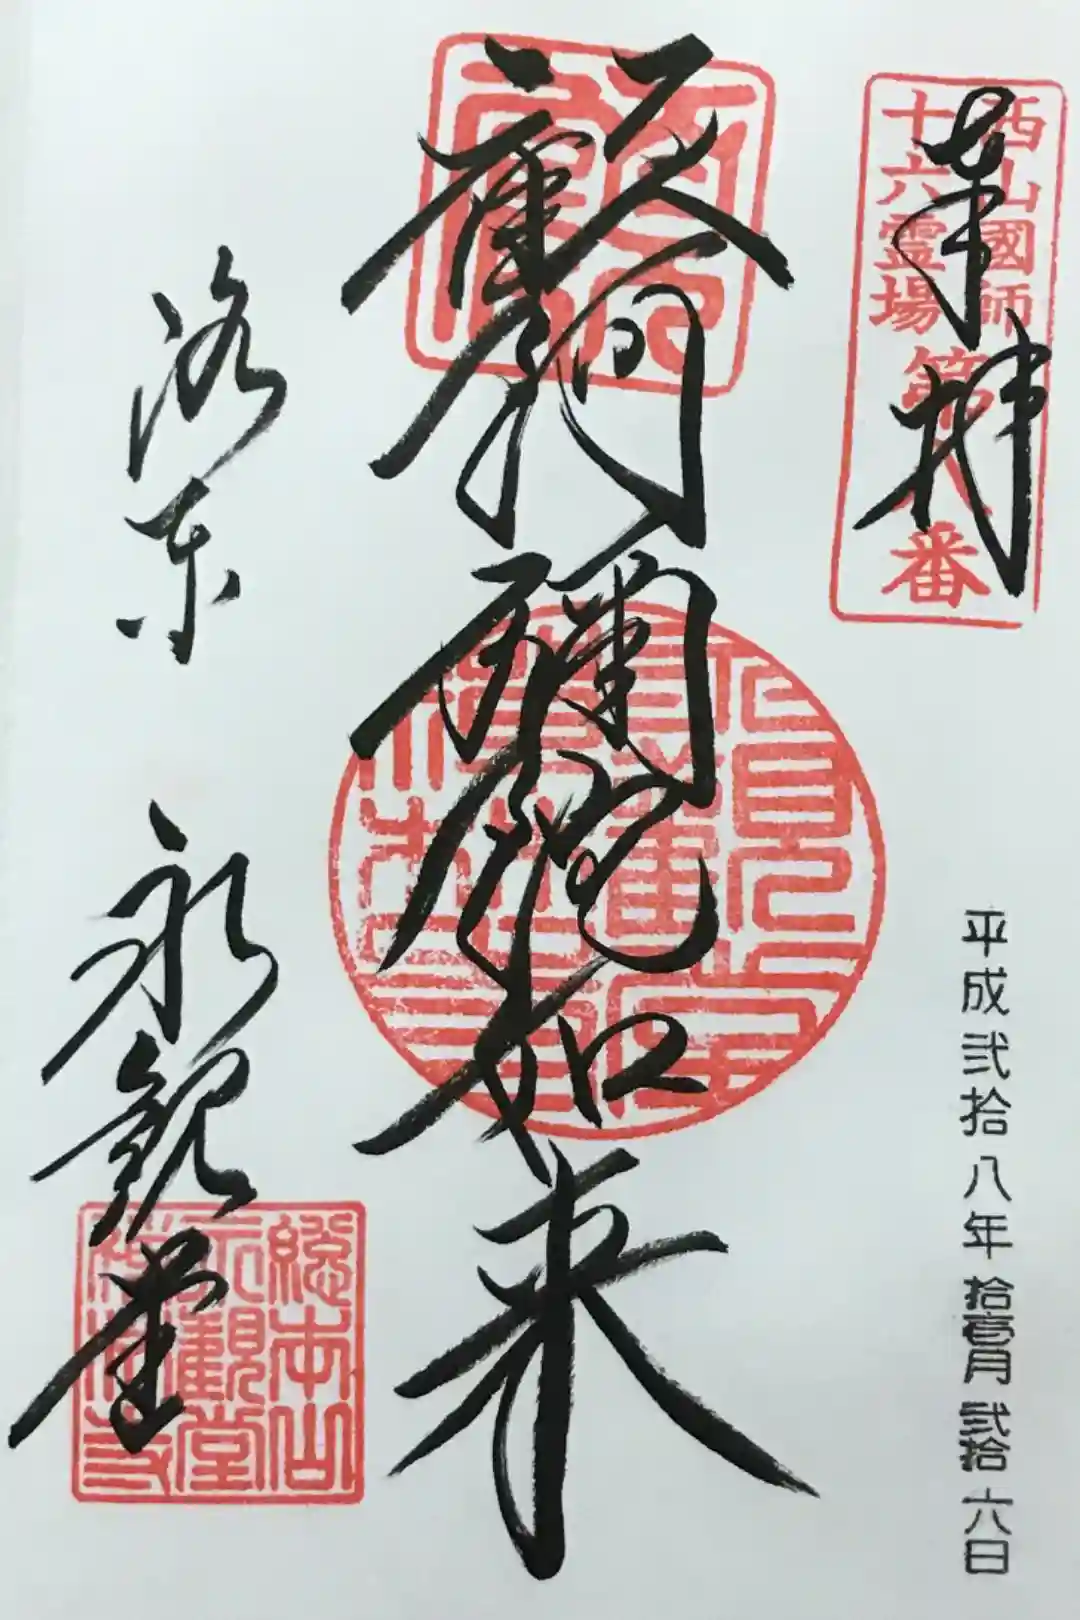 奉拝
西山國師
十六霊場
第八番
顧阿彌陀如来
洛東 永観堂
総本山
永觀堂
禅林寺
平成弐拾八年拾壹月弐拾六日